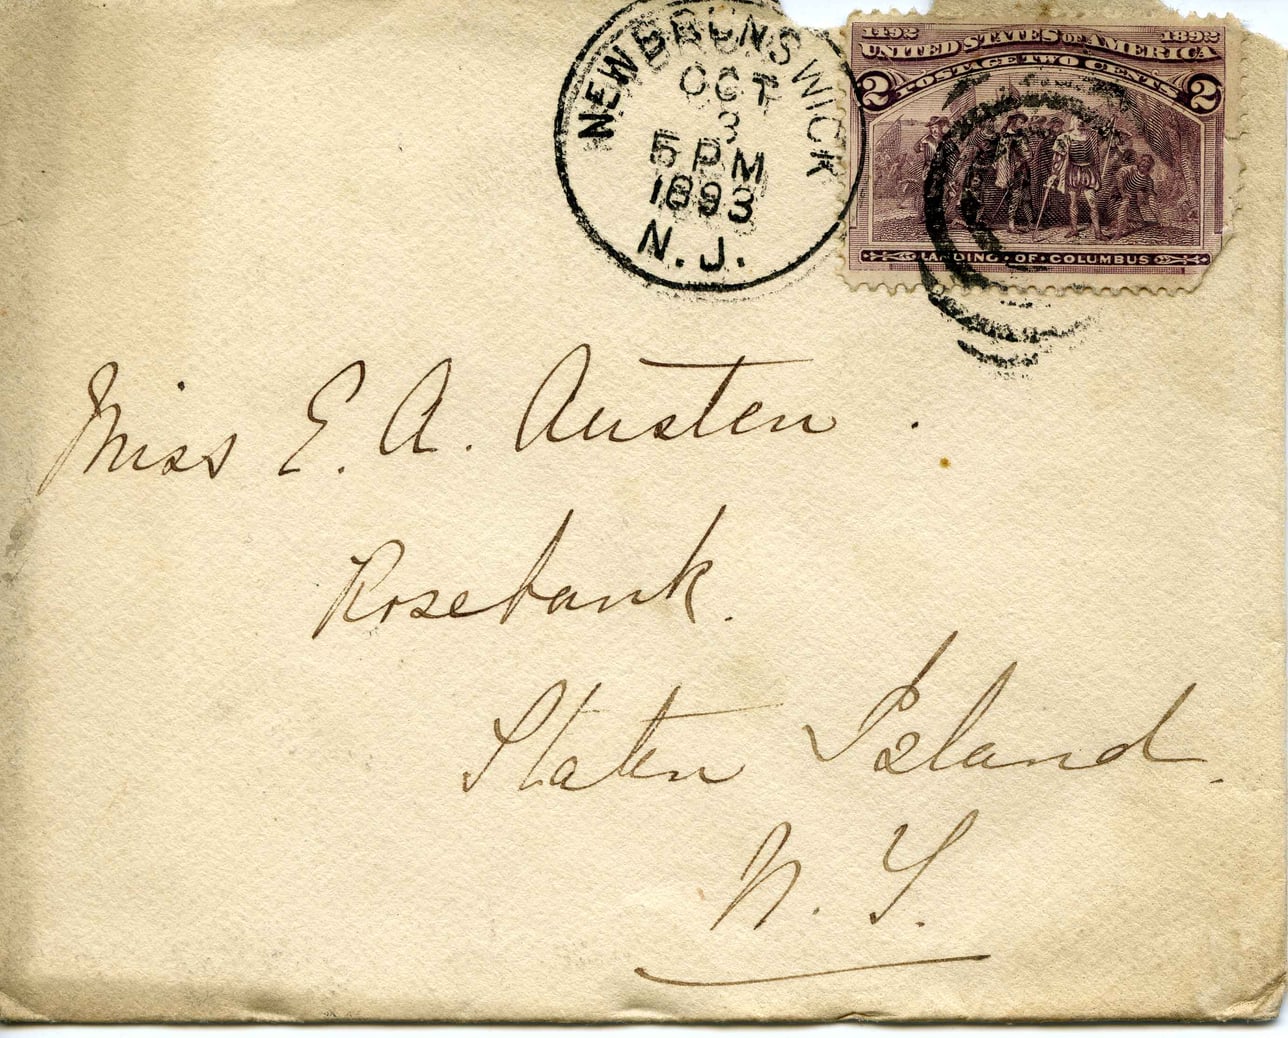 NEW BRUNSWICK
OCT
3
5 PM
1893
N.J.
1492 1892
UNITED STATES OF AMERICA
POSTAGE TWO CENTS
2 2
LANDING · OF · COLUMBUS
Miss E. A. Austen.
Rosebank.
Staten Island.
N. Y.